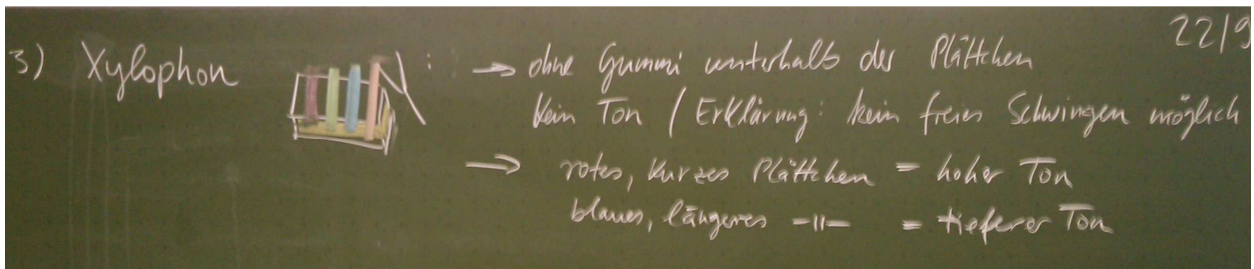 22/9
3) Xylophon : → ohne Gummi unterhalb der Plättchen
kein Ton / Erklärung: kein freies Schwingen möglich
→ rotes, kurzes Plättchen = hoher Ton
blaues, längeres -||- = tieferer Ton